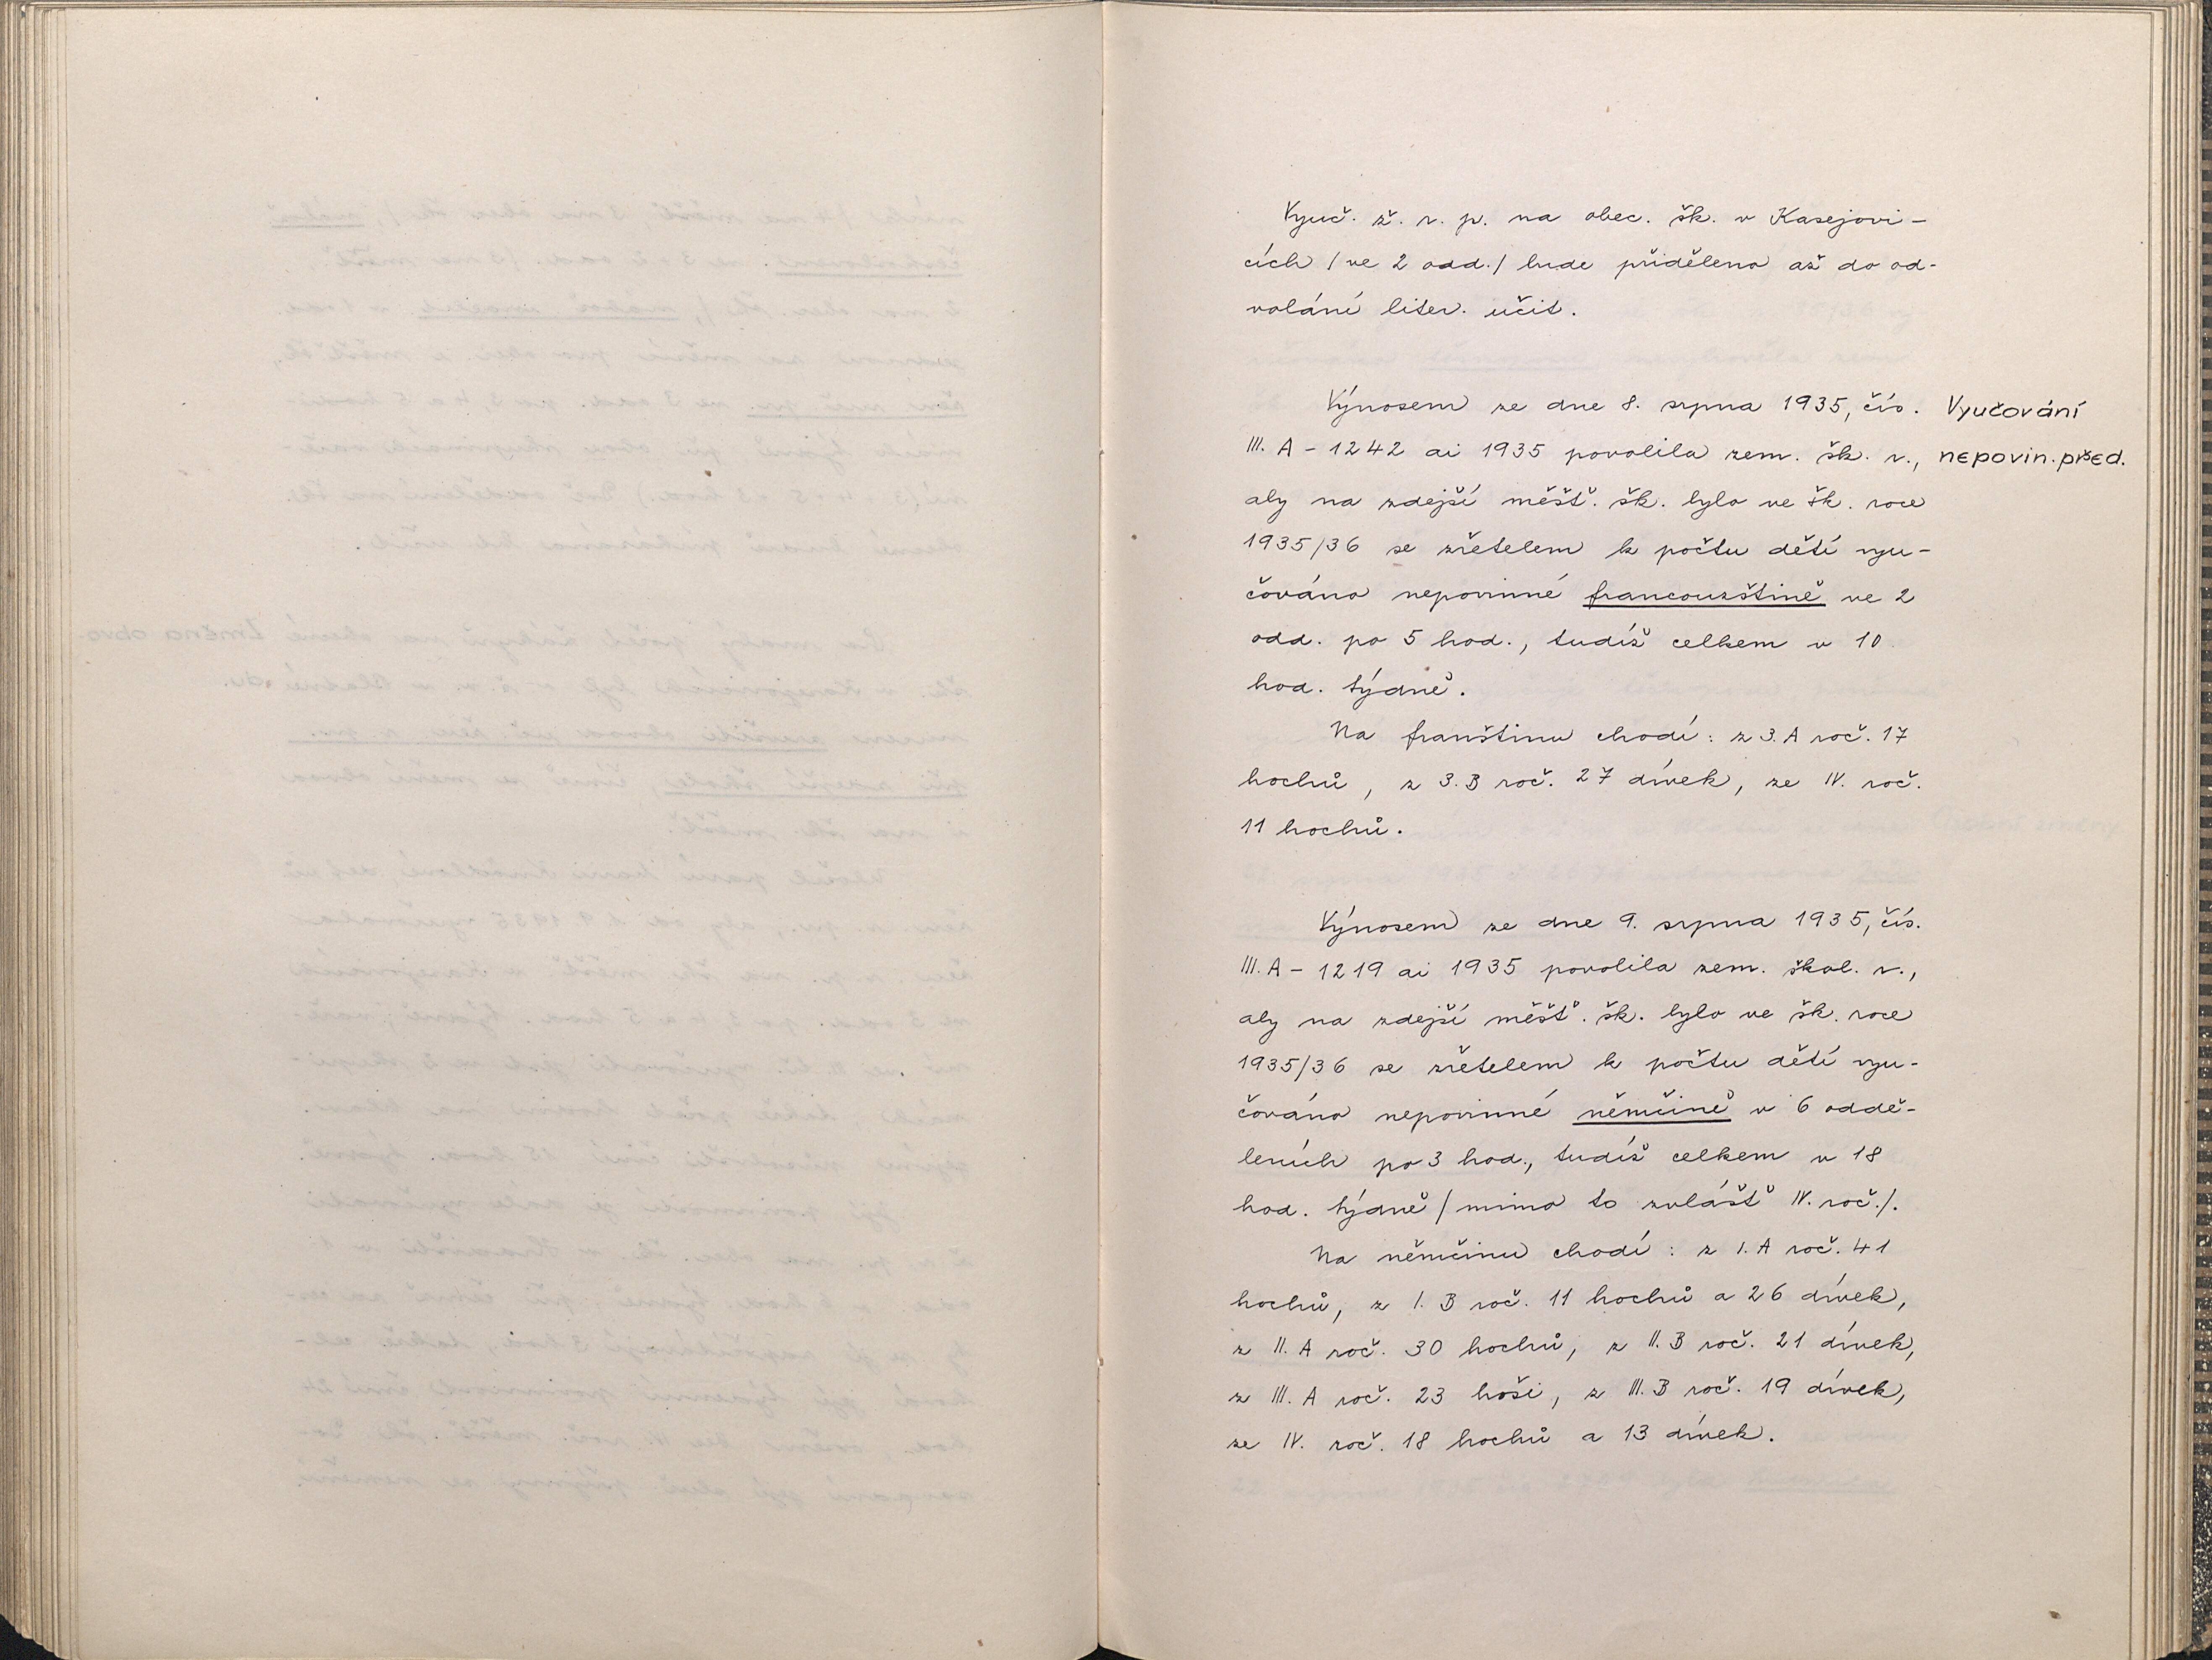 Vyuč. ž. r. p. na obec. šk. v Kasejovi-
cích / ve 2 odd./ bude přiděleno až do od-
volání liter. učit.
Výnosem ze dne 8. srpna 1935, čís.
Vyučování
III. A - 1242 ai 1935 povolila zem. šk. r.,
nepovin. před.
aby na zdejší měšť. šk. bylo ve šk. roce
1935/36 se zřetelem k počtu dětí vyu-
čováno nepovinné francouzštině ve 2
odd. po 5 hod., tudíž celkem v 10
hod. týdně.
Na franštinu chodí: z 3. A roč. 17
hochů, z 3. B roč. 27 dívek, ze IV. roč.
11 hochů.
Výnosem ze dne 9. srpna 1935, čís.
III. A - 1219 ai 1935 povolila zem. škol. r.,
aby na zdejší měšť. šk. bylo ve šk. roce
1935/36 se zřetelem k počtu dětí vyu-
čováno nepovinné němčině v 6 oddě-
leních po 3 hod., tudíž celkem v 18
hod. týdně / mimo to zvlášť IV. roč./.
Na němčinu chodí: z I. A roč. 41
hochů, z I. B roč. 11 hochů a 26 dívek,
z II. A roč. 30 hochů, z II. B roč. 21 dívek,
z III. A roč. 23 hoši, z III. B roč. 19 dívek,
ze IV. roč. 18 hochů a 13 dívek.